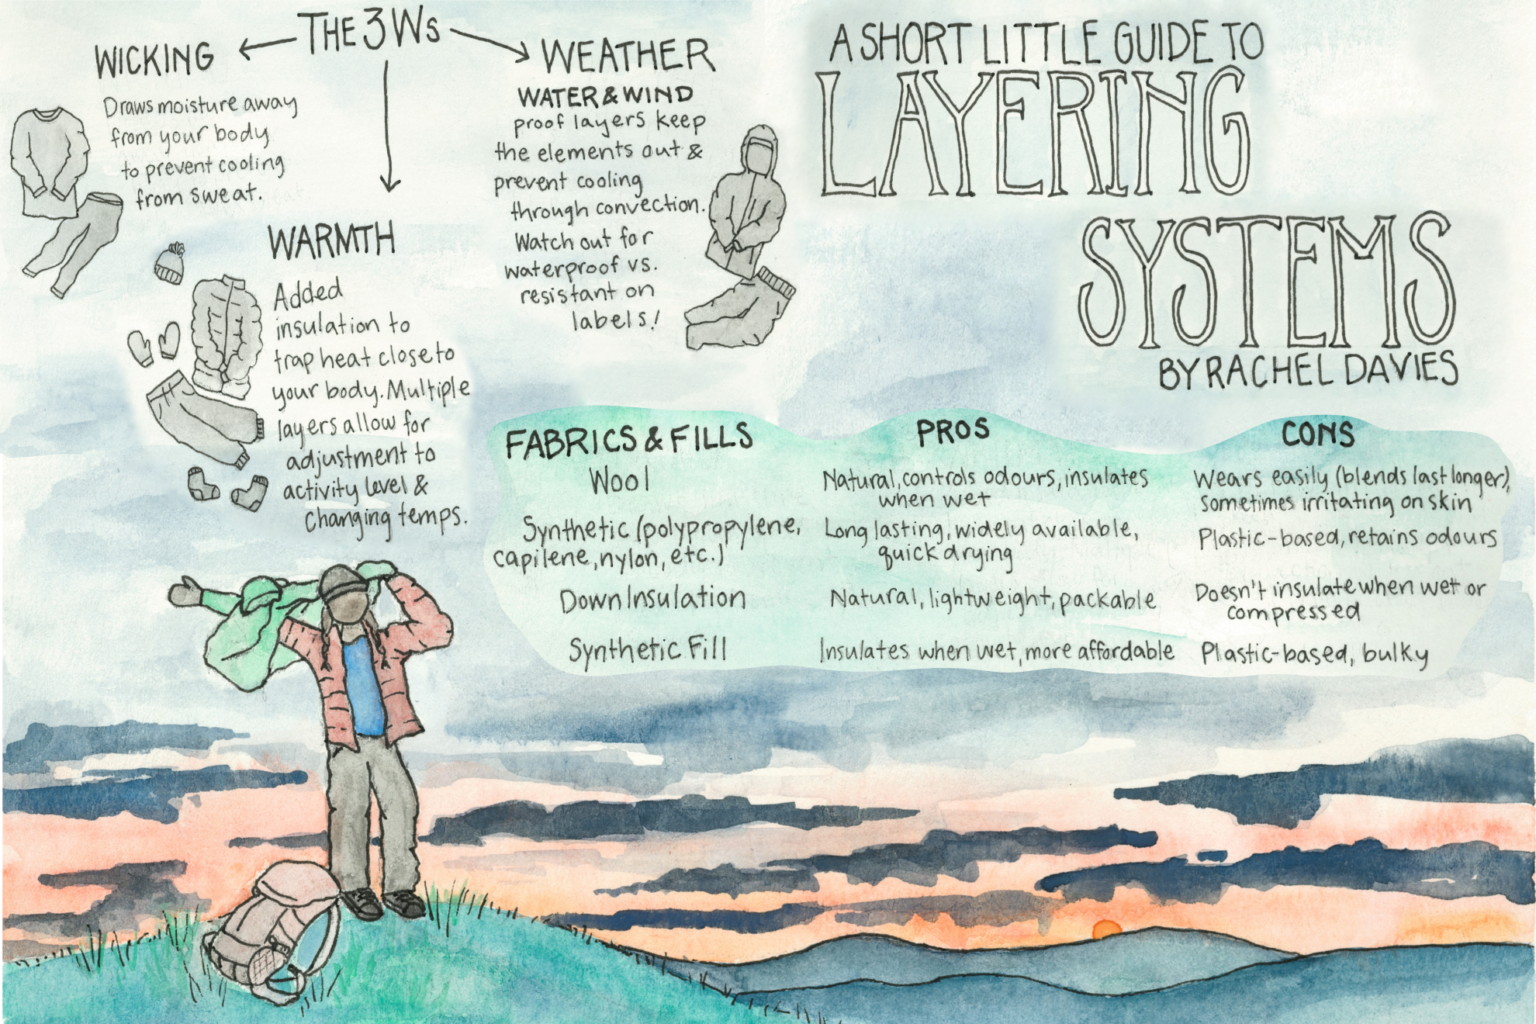 THE 3 Ws
WICKING
Draws moisture away
from your body
to prevent cooling
from sweat.
WARMTH
Added
insulation to
trap heat close to
your body. Multiple
layers allow for
adjustment to
activity level &
changing temps.
WEATHER
WATER & WIND
proof layers keep
the elements out &
prevent cooling
through convection.
Watch out for
waterproof vs.
resistant on
labels!
A SHORT LITTLE GUIDE TO
LAYERING
SYSTEMS
BY RACHEL DAVIES
FABRICS & FILLS PROS CONS
Wool
Natural, controls odours, insulates
when wet
Wears easily (blends last longer),
sometimes irritating on skin
Synthetic (polypropylene,
capilene, nylon, etc.)
Long lasting, widely available,
quick drying
Plastic-based, retains odours
Down Insulation
Natural, lightweight, packable
Doesn't insulate when wet or
compressed
Synthetic Fill
Insulates when wet, more affordable
Plastic-based, bulky